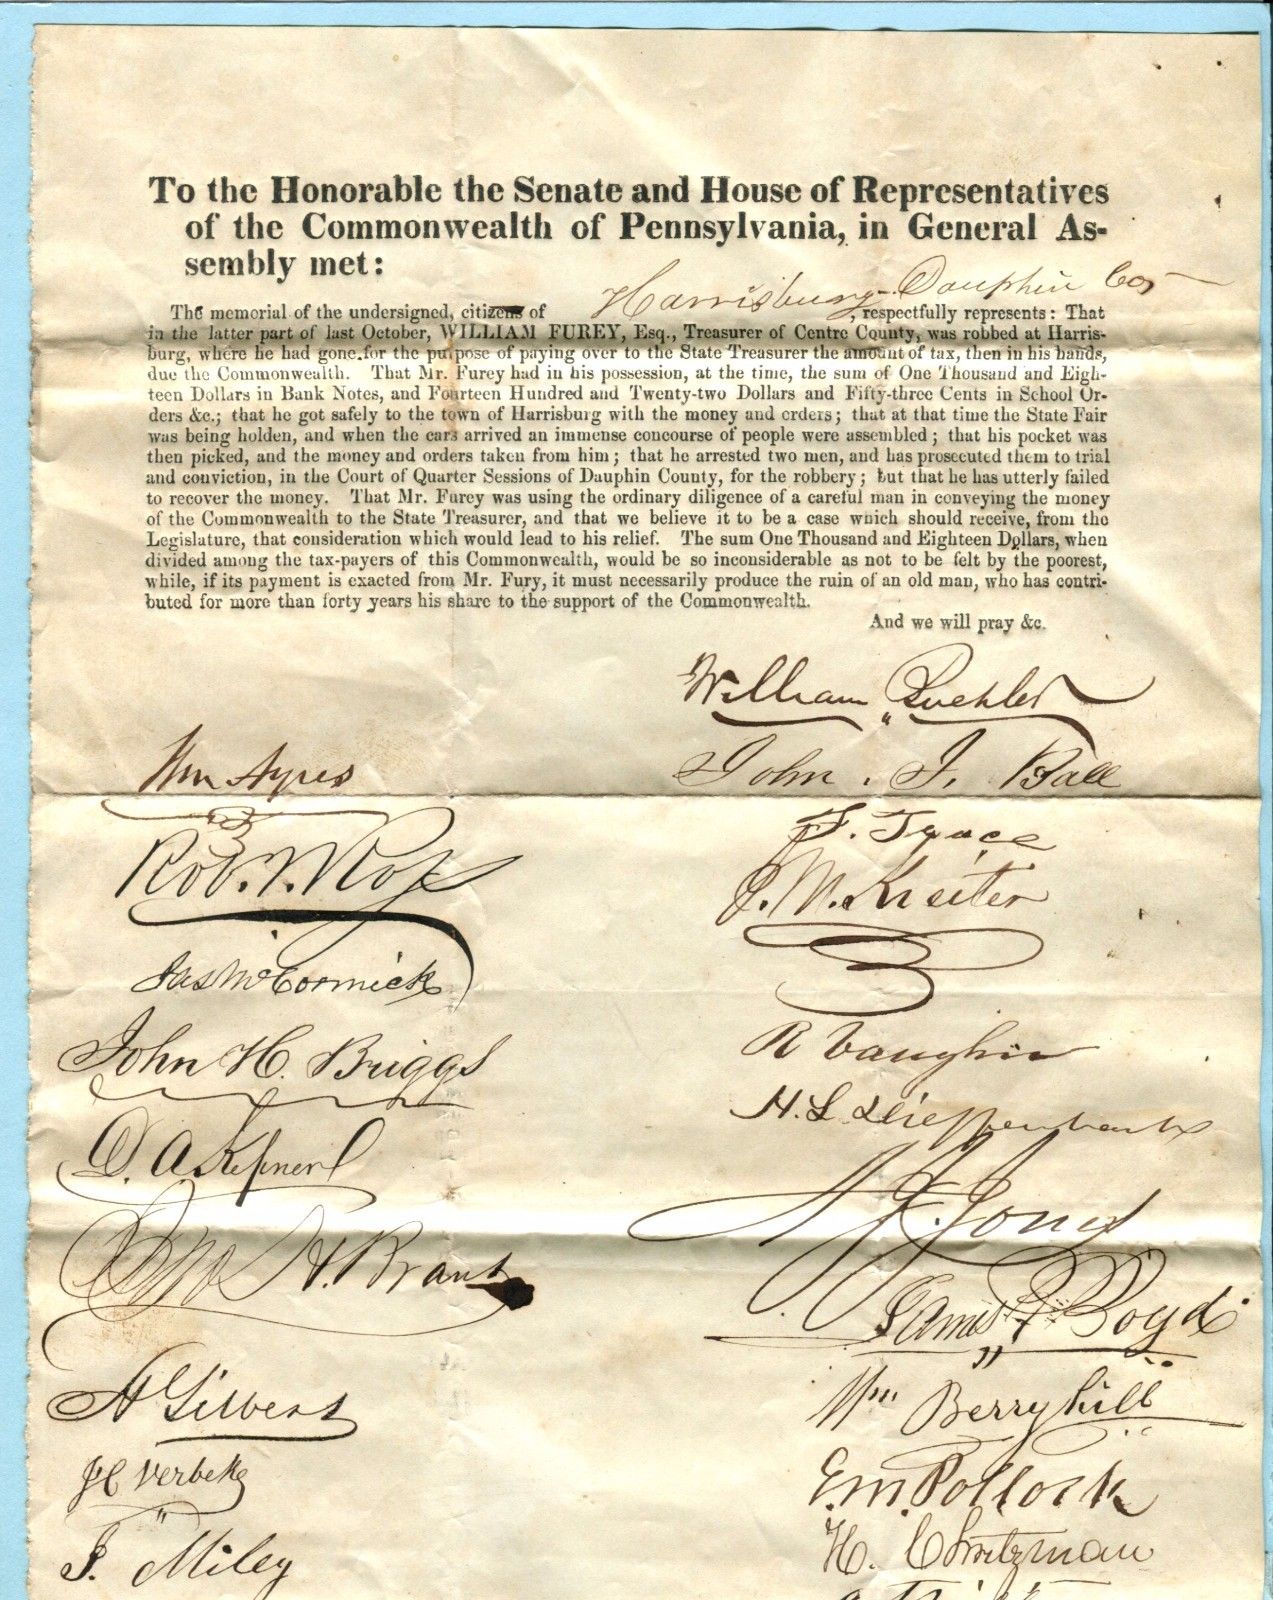 To the Honorable the Senate and House of Representatives
of the Commonwealth of Pennsylvania, in General As-
sembly met:
The memorial of the undersigned, citizens of Harrisburg Dauphin Co, respectfully represents: That
in the latter part of last October, WILLIAM FUREY, Esq., Treasurer of Centre County, was robbed at Harris-
burg, where he had gone for the purpose of paying over to the State Treasurer the amount of tax, then in his hands,
due the Commonwealth. That Mr. Furey had in his possession, at the time, the sum of One Thousand and Eigh-
teen Dollars in Bank Notes, and Fourteen Hundred and Twenty-two Dollars and Fifty-three Cents in School Or-
ders &c.; that he got safely to the town of Harrisburg with the money and orders; that at that time the State Fair
was being holden, and when the cars arrived an immense concourse of people were assembled; that his pocket was
then picked, and the money and orders taken from him; that he arrested two men, and has prosecuted them to trial
and conviction, in the Court of Quarter Sessions of Dauphin County, for the robbery; but that he has utterly failed
to recover the money. That Mr. Furey was using the ordinary diligence of a careful man in conveying the money
of the Commonwealth to the State Treasurer, and that we believe it to be a case which should receive, from the
Legislature, that consideration which would lead to his relief. The sum One Thousand and Eighteen Dollars, when
divided among the tax-payers of this Commonwealth, would be so inconsiderable as not to be felt by the poorest,
while, if its payment is exacted from Mr. Fury, it must necessarily produce the ruin of an old man, who has contri-
buted for more than forty years his share to the support of the Commonwealth.
And we will pray &c.
William Buehler
Wm Ayres
John. J. Ball
Rob. 
J. M. Kreiter
Jas McCormick
R Vaughn
John H. Briggs
H. L.
D. A. Kepner
Jones
H. Brant
James Boyd
Wm Berryhill
H Gilbert
E. M. Pollock
Verbeke
H.
J. Miley